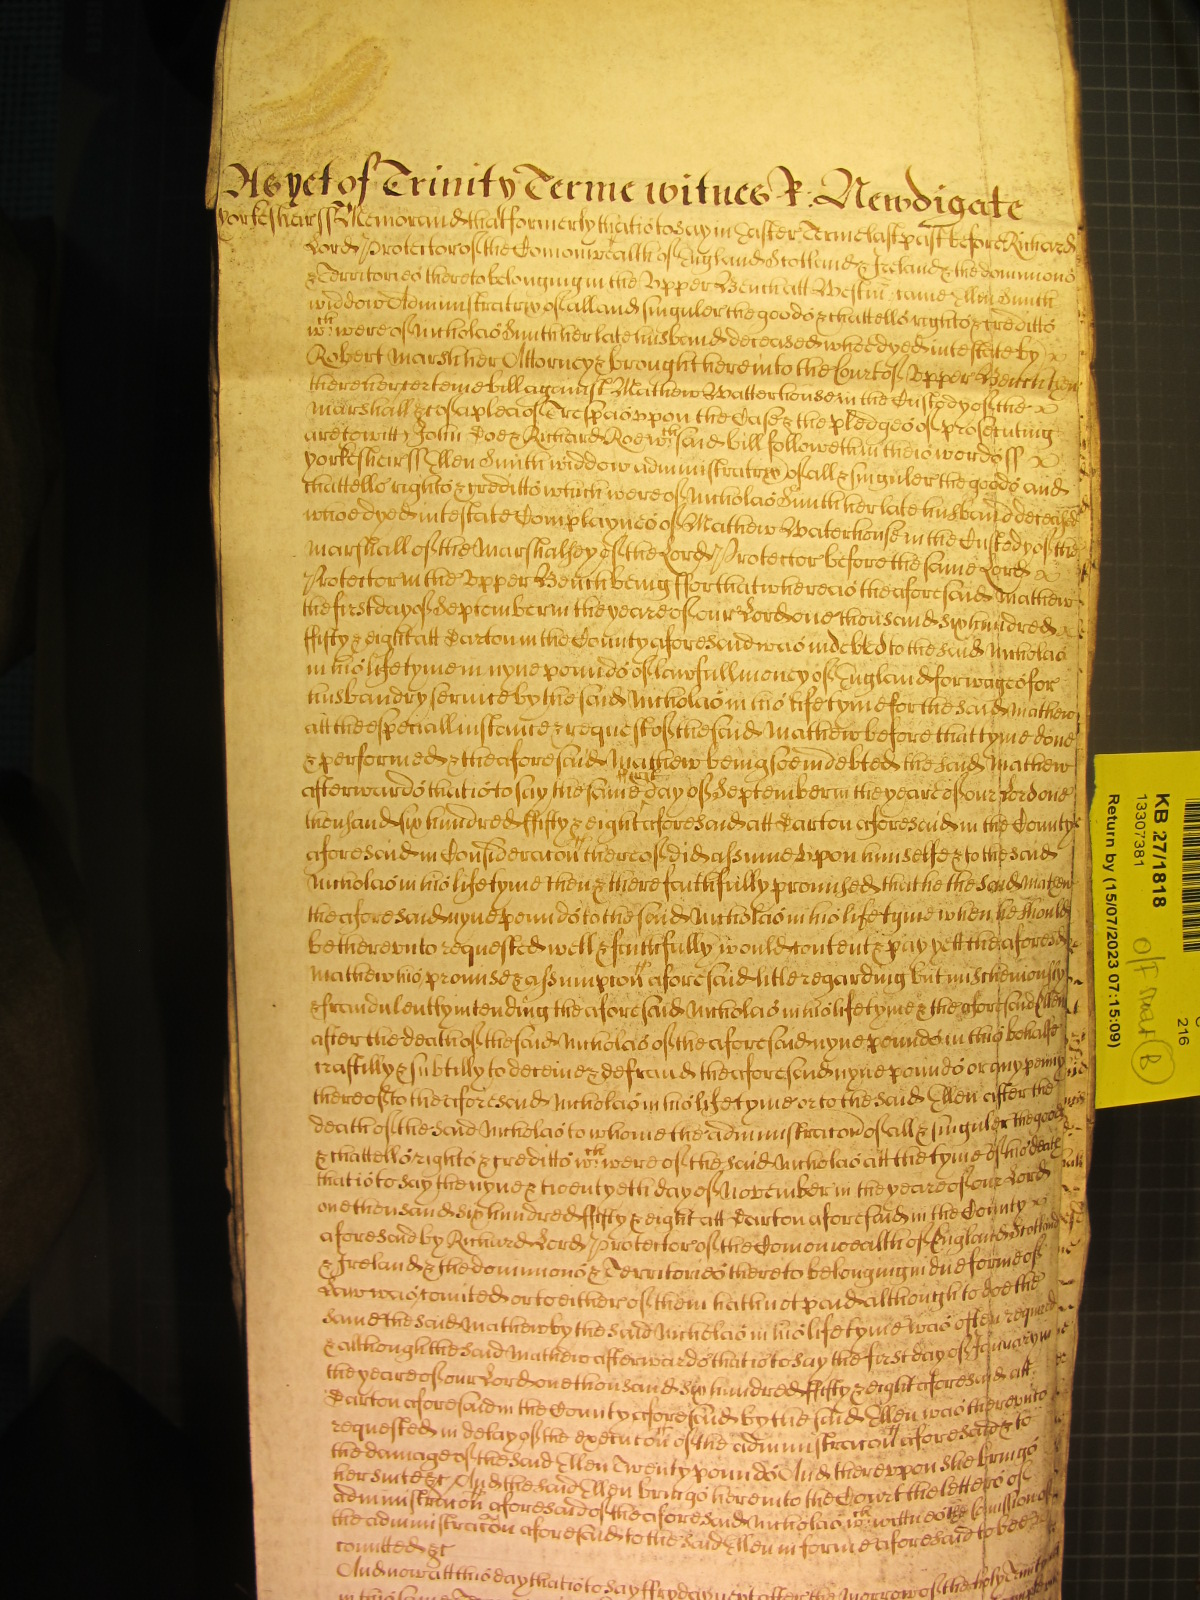 As yet of Trinity Terme witnes R: Newdigate
Yorkesheir ss Memorand that formerly that is to say in Easter Terme last past before Richard
Lord Protector of the Comonwealth of England Scotland & Ireland & the dominions
& Territories thereto belonging in the Upper Bench att Westm came Ellen Smith
widdow Administratrix of all and singuler the goods & chattells rights & creditts
wch were of Nicholas Smith her late husband deceased whoe dyed intestate by
Robert Marsh her Attorney & brought here into the Court of Upper Bench then
there her certeine bill against Mathew Watterhouse in the Custody of the
Marshall &c of a plea of Trespas upon the Case & the pledges of prosecuting
are to witt John Doe & Richard Roe wch said bill followeth in theis words ss
Yorkesheir ss Ellen Smith widdow administratrix of all & singuler the goods and
chattells rights & creditts which were of Nicholas Smith her late husband deceased
whoe dyed intestate Complaynes of Mathew Waterhouse in the Custody of the
Marshall of the Marshalsey of the Lord Protector before the same Lord
Protector in the Upper Bench being ffor that whereas the aforesaid Mathew
the first day of September in the yeare of our Lord one thousand six hundred
ffifty & eight att Barton in the County aforesaid was indebted to the said Nicholas
in his life tyme in nyne pounds of lawfull money of England for wages for
husbandry service by the said Nicholas in his life tyme for the said Mathew
att the especiall instance & request of the said Mathew before that tyme done
& performed & the aforesaid Mathew being soe indebted the said Mathew
afterwards that is to say the same first day of September in the yeare of our Lord one
thousand six hundred ffifty & eight aforesaid att Barton aforesaid in the County
aforesaid in Consideracon thereof did assume upon himselfe & to the said
Nicholas in his life tyme then & there faithfully promised that he the said Mathew
the aforesaid nyne pounds to the said Nicholas in his life tyme when he should
be thereunto requested well & faithfully would content & pay yett the aforesaid
Mathew his promise & assumpcon aforesaid litle regarding but mischeivously
& fraudulently intending the aforesaid Nicholas in his life tyme & the aforesaid Ellen
after the death of the said Nicholas of the aforesaid nyne pounds in this behalfe
craftilly & subtilly to deceive & defraud the aforesaid nyne pounds or any penny
thereof to the aforesaid Nicholas in his life tyme or to the said Ellen after the
death of the said Nicholas to whome the administracon of all & singuler the goods
& chattells rights & creditts wch were of the said Nicholas att the tyme of his death
that is to say the nyne & twentyeth day of November in the yeare of our Lord
one thousand six hundred ffifty & eight att Barton aforesaid in the County
aforesaid by Richard Lord Protector of the Comonwealth of England Scotland
& Ireland & the dominions & Territories thereto belonging in due forme of
Law was comited or to either of them hath not paid although to doe the
same the said Mathew by the said Nicholas in his life tyme was often required
& although the said Mathew afterwards that is to say the first day of January in
the yeare of our Lord one thousand six hundred ffifty & eight aforesaid att
Barton aforesaid in the County aforesaid by the said Ellen was thereunto
requested in delay of the execucon of the administracon aforesaid & to
the damage of the said Ellen Twenty pounds And thereupon she brings
her suite &c And the said Ellen brings here into the Court the letters of
administracon aforesaid of the aforesaid Nicholas wch wittnes the comission of
the administracon aforesaid to the said Ellen in forme aforesaid to bee
comitted &c
And now att this day that is to say ffryday next after the Morrow of the holy Trinity
in this same
KB 27/1818
13307381
Return by (15/07/2023 07:15:09)
216